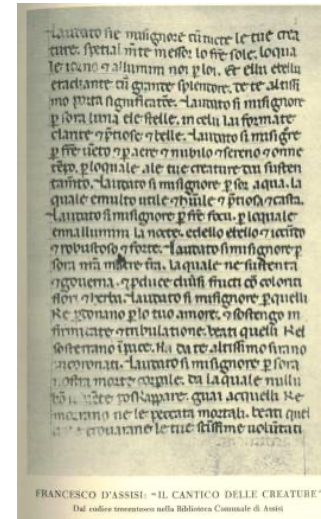 Laudato sie misignore cū tucte le tue crea
ture. spetialm̄te messor lo fre sole. loqua
le iorno ⁊ allumini noi p loi. Et ellu e bellu
e radiante cū grande splendore. de te altissi
mo porta significatiōe. Laudato si misignore
p sora luna ele stelle. in celu lai formate
clarite ⁊ p̄tiose ⁊ belle. Laudato si misigr̄e
p fre uēto ⁊ p aere ⁊ nubilo ⁊ sereno ⁊ onne
tēpo. p loquale ale tue creature dai susten
tam̄to. Laudato si misignore p sor aqua. la
quale e multo utile ⁊ hūile ⁊ p̄tiosa ⁊ casta.
Laudato si misignore p fre focu. p loquale
ennallumini la nocte. edello e bello ⁊ iocūdo
⁊ robustoso ⁊ forte. Laudato si misignore p
sora nr̄a matre tr̄a. la quale ne sustenta
⁊ gouerna. ⁊ p̄duce diuersi fructi cō coloriti
flori ⁊ herba. Laudato si misignore p quelli
ke p̄donano p lo tuo amore. ⁊ sostengo in
firmitate ⁊ tribulatione. beati quelli ke
sosterrano ī pace. ka da te altissimo sirano
incoronati. Laudato si misignore p sora
nostra morte corpale. da la quale nullu
hō uiuēte poskappare. guai acquelli ke
morrano ne le peccata mortali. beati quel
ke trouarane le tue sc̄issime uoluntati
FRANCESCO D'ASSISI: "IL CANTICO DELLE CREATURE"
Dal codice trecentesco nella Biblioteca Comunale di Assisi